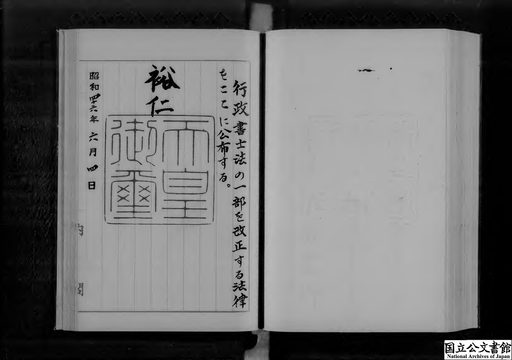 行政書士法の一部を改正する法律
をここに公布する。
裕仁
天皇
御璽
昭和四十六年六月四日
内閣
国立公文書館
National Archives of Japan